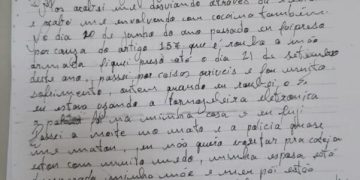 Por acabei me desviando através de
e acabei me envolvendo com cocaína também.
No dia 10 de junho do ano passado eu fui preso
por causa do artigo 157 que é, roubo a mão
armada. Fiquei preso até o dia 21 de setembro
deste ano, passei por coisas horríveis e foi muito
sofrimento, ontem quando eu
eu estava usando a tornozeleira eletrônica
na minha casa e eu fugi
Passei a noite no mato e a polícia quase
me matou, eu não quero voltar pra cadeia
estou com muito medo, minha esposa está
minha mãe e meu pai estão